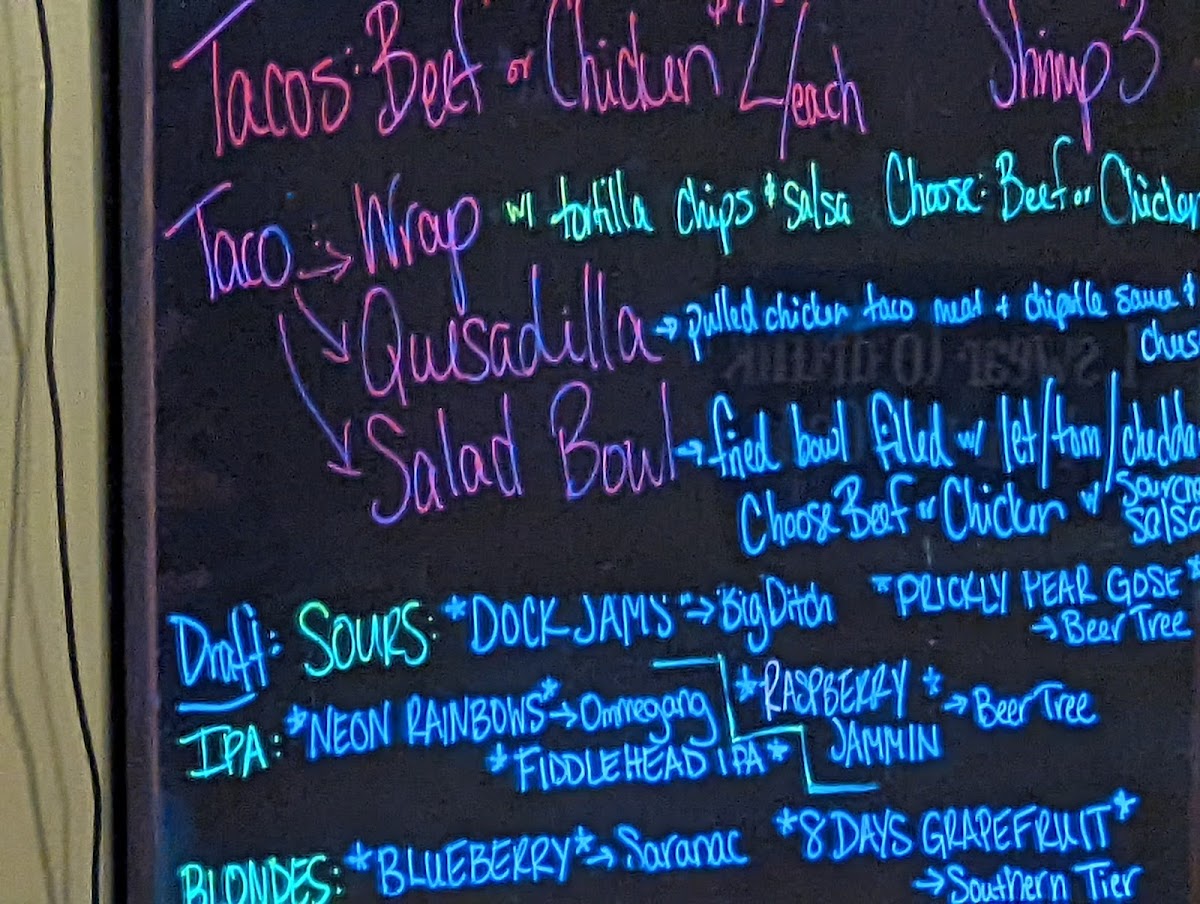 Tacos: Beef or Chicken 2/each Shrimp 3
Taco → Wrap w/ tortilla chips & salsa Choose: Beef or Chicken
Quesadilla → pulled chicken taco meat + chipotle sauce &
Salad Bowl → fried bowl filled w/ let/tom/chedda
Choose Beef or Chicken w/ sourcre
salsa
Draft: SOURS: *DOCK JAMS" → Big Ditch *PRICKLY PEAR GOSE*
→ Beer Tree
IPA: *NEON RAINBOWS* → Ommegang *RASPBERRY * → Beer Tree
JAMMIN
*FIDDLEHEAD IPA*
BLONDES: *BLUEBERRY* → Saranac *8 DAYS GRAPEFRUIT*
→ Southern Tier